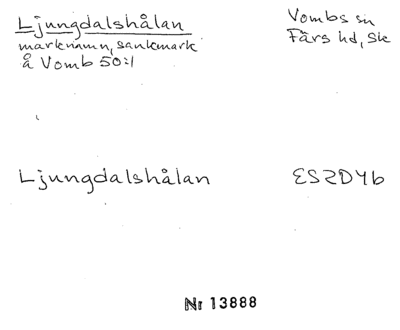 Ljungdalshålan
marknamn, sankmark
å Vomb 50:1
Vombs sn
Färs hd, Sk
Ljungdalshålan
ES2D4b
Nr 13888